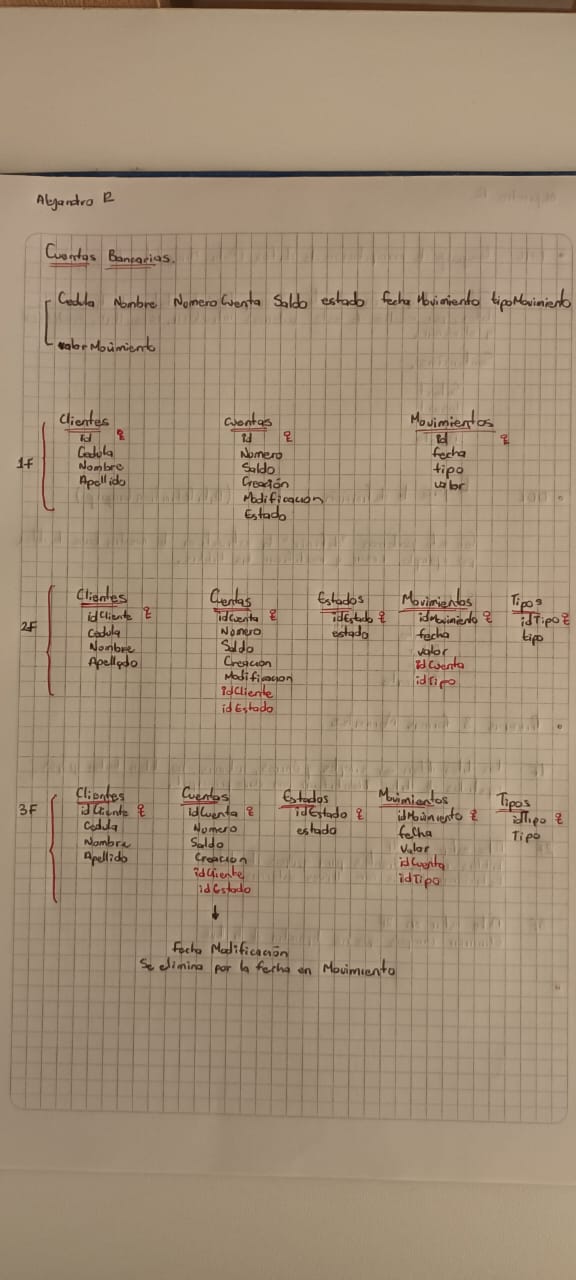 Alejandro R
Cuentas Bancarias.
Cedula Nombre NumeroCuenta Saldo estado fechaMovimiento tipoMovimiento
valorMovimiento
1F
Clientes
id
Cedula
Nombre
Apellido
Cuentas
id
Numero
Saldo
Creación
Modificacion
Estado
Movimientos
id
fecha
tipo
valor
2F
Clientes
idCliente
Cedula
Nombre
Apellido
Cuentas
idCuenta
Numero
Saldo
Creacion
Modificacion
idCliente
idEstado
Estados
idEstado
estado
Movimientos
idMovimiento
fecha
valor
idCuenta
idTipo
Tipos
idTipo
tipo
3F
Clientes
idCliente
Cedula
Nombre
Apellido
Cuentas
idCuenta
Numero
Saldo
Creacion
idCliente
idEstado
Estados
idEstado
estado
Movimientos
idMovimiento
fecha
valor
idCuenta
idTipo
Tipos
idTipo
Tipo
Fecha Modificación
Se elimina por la fecha en Movimiento